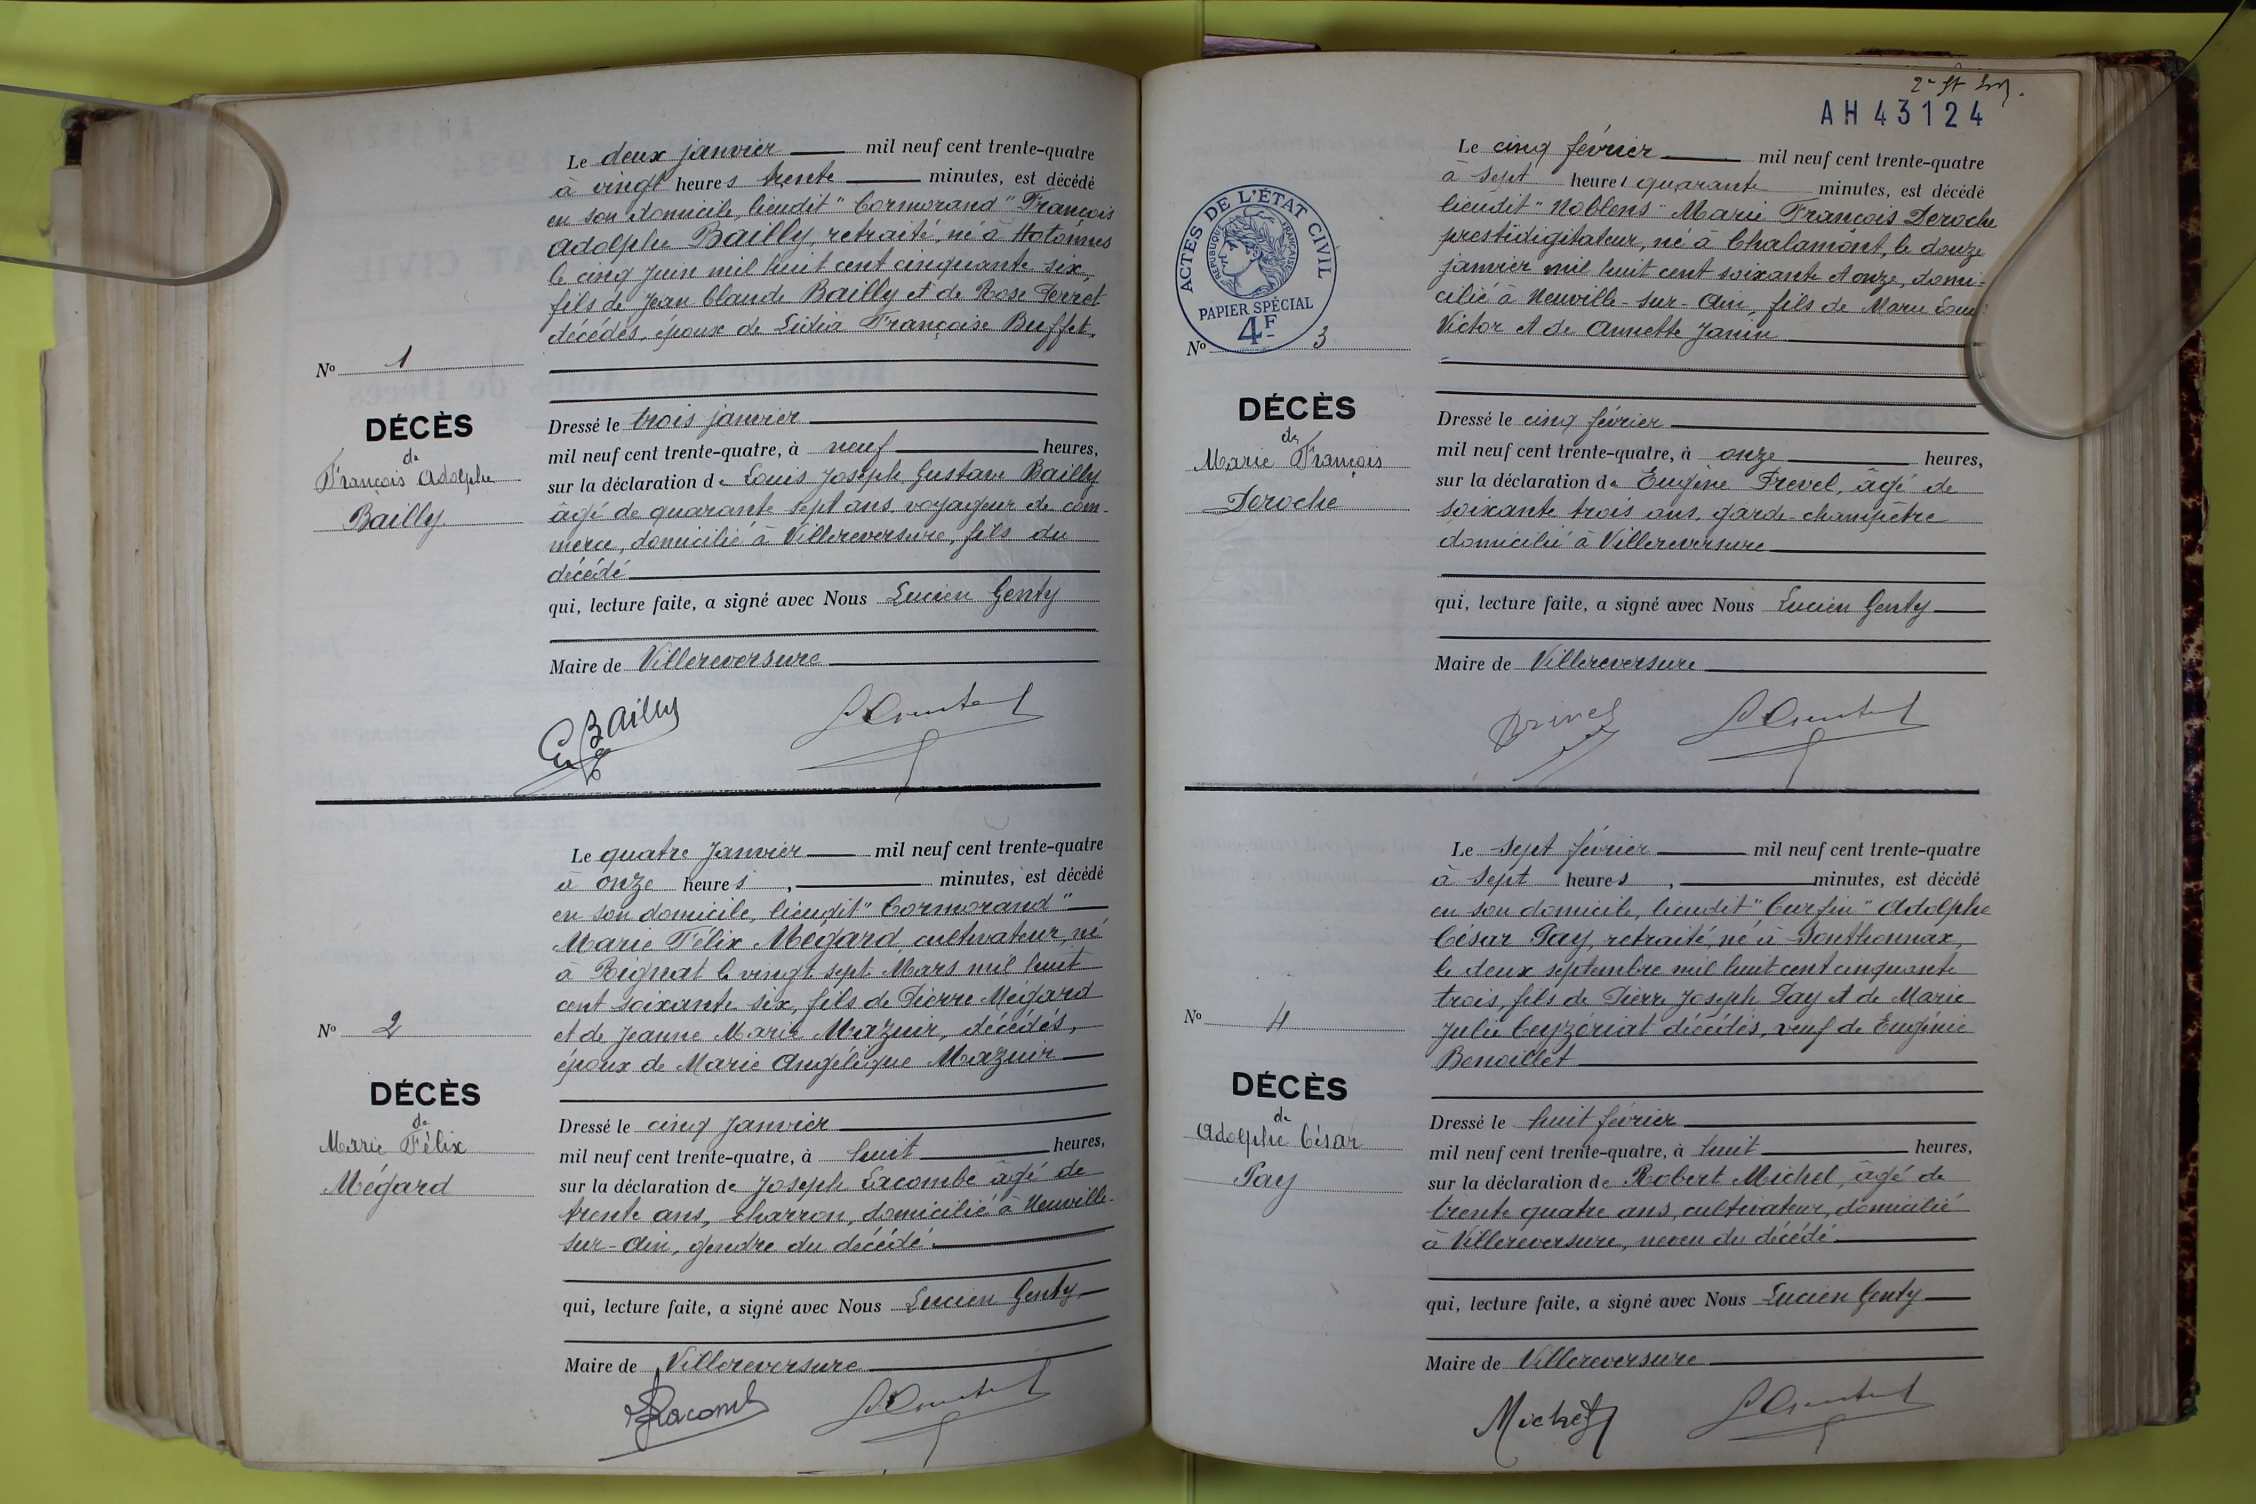 Le deux janvier mil neuf cent trente-quatre
à vingt heures trente minutes, est décédé
en son domicile, lieudit "Cormorand" François
Adolphe Bailly, retraité, né à Hotonnes
le cinq Juin mil huit cent cinquante six,
fils de Jean Claude Bailly et de Rose Perret
décédés, époux de Lidia Françoise Buffet.
No 1
DÉCÈS
de
François Adolphe
Bailly
Dressé le trois janvier
mil neuf cent trente-quatre, à neuf heures,
sur la déclaration de Louis Joseph Gustave Bailly
âgé de quarante sept ans voyageur de com-
merce, domicilié à Villereversure, fils du
décédé
qui, lecture faite, a signé avec Nous Lucien Genty
Maire de Villereversure
Bailly
Le quatre Janvier mil neuf cent trente-quatre
à onze heures, minutes, est décédé
en son domicile, lieudit "Cormorand"
Marie Félix Mégard cultivateur, né
à Rignat le vingt sept Mars mil huit
cent soixante six, fils de Pierre Mégard
et de Jeanne Marie Mazuir, décédés,
époux de Marie Angélique Mazuir
No 2
DÉCÈS
de
Marie Félix
Mégard
Dressé le cinq Janvier
mil neuf cent trente-quatre, à huit heures,
sur la déclaration de Joseph Lacombe âgé de
trente ans, charron, domicilié à Neuville-
sur-Ain, gendre du décédé.
qui, lecture faite, a signé avec Nous Lucien Genty
Maire de Villereversure
Lacombe
AH 43124
ACTES DE L'ÉTAT CIVIL
RÉPUBLIQUE FRANÇAISE
PAPIER SPÉCIAL
4F
Le cinq février mil neuf cent trente-quatre
à sept heures quarante minutes, est décédé
lieudit "Noblens" Marie François Deroche
prestidigitateur, né à Chalamont, le douze
janvier mil huit cent soixante et onze, domi-
cilié à Neuville-sur-Ain, fils de Marie Louis
Victor et de Annette Janin
No 3
DÉCÈS
de
Marie François
Deroche
Dressé le cinq février
mil neuf cent trente-quatre, à onze heures,
sur la déclaration de Eugène Prevel, âgé de
soixante trois ans, garde-champêtre
domicilié à Villereversure
qui, lecture faite, a signé avec Nous Lucien Genty
Maire de Villereversure
Le sept février mil neuf cent trente-quatre
à sept heures, minutes, est décédé
en son domicile, lieudit "Curfin" Adolphe
César Pay, retraité, né à Sonthonnax,
le deux septembre mil huit cent cinquante
trois, fils de Pierre Joseph Pay et de Marie
Julie Ceyzériat décédés, veuf de Eugénie
Benoillet
No 4
DÉCÈS
de
Adolphe César
Pay
Dressé le huit février
mil neuf cent trente-quatre, à huit heures,
sur la déclaration de Robert Michel, âgé de
trente quatre ans, cultivateur, domicilié
à Villereversure, neveu du décédé.
qui, lecture faite, a signé avec Nous Lucien Genty
Maire de Villereversure
Michel